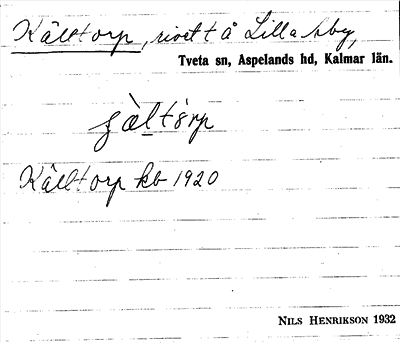 Källtorp, rivet t å Lilla Aby,
Tveta sn, Aspelands hd, Kalmar län.
jàltòrp
Källtorp kb 1920
NILS HENRIKSON 1932